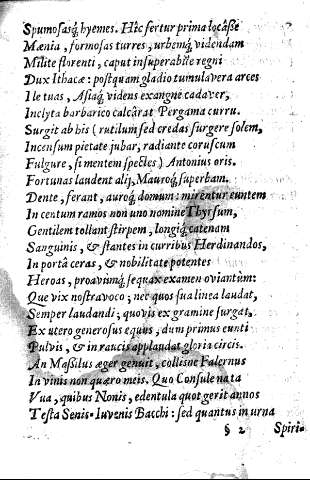 Spumosasq́; hyemes. Hîc fertur prima locâsſe
Mœnia, formosas turres, urbemq́; videndam
Milite florenti, caput insuperabile regni
Dux Ithacæ: postquam gladio tumulavera arces
Iletuas, Asiaq́; videns exangne cadaver,
Inclyta barbarico calcârat Pergama curru.
Surgit ab his (rutilum sed credas surgere solem,
Incensum pietate jubar, radiante coruscum
Fulgure, si mentem spectes) Antonius oris.
Fortunas laudent alij, Mauroq́; superbam.
Dente, ferant, auroq́; domum: mirentur euntem
In centum ramos non uno nomine Thyrsum,
Gentilem tollant stirpem, longiq́; catenam
Sanguinis, & stantes in curribus Herdinandos,
In portâ ceras, & nobilitate potentes
Heroas, proavûmq́; sequax examen oviantûm:
Que vix nostra voco; nec quos sua linea laudat,
Semper laudandi; quovis ex gramine surgat,
Ex utero generosus equus, dum primus eunti
Pulvis, & in raucis applaudat gloria circis.
An Maßilus æger genuit, collisne Falernus
In vinis non quæro meis. Quo Consule nata
Vua, quibus Nonis, edentula quot gerit annos
Testa Senis-Iuvenis Bacchi: sed quantus in urna
§ 2 Spiri-